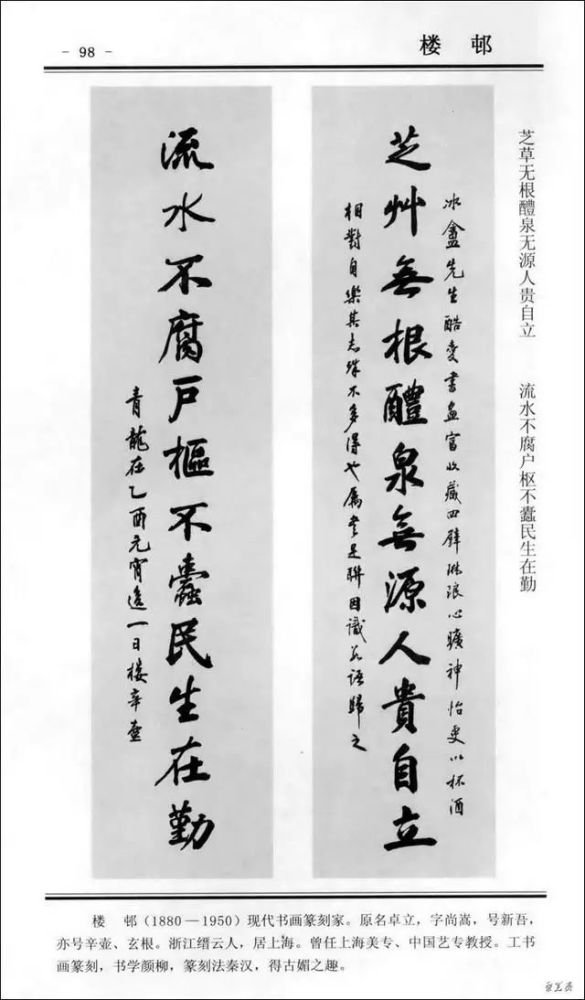 - 98 -
楼 邨
芝草无根醴泉无源人贵自立 流水不腐户枢不蠹民生在勤
冰盦先生酷爱书画富收藏四壁琳琅心旷神怡更以杯酒
芝艸無根醴泉無源人貴自立
相對自樂其志殊不多得也屬書是聯因識數語歸之
流水不腐戶樞不蠹民生在勤
青龍在乙酉元宵後一日楼辛壺
楼 邨（1880—1950）现代书画篆刻家。原名卓立，字尚嵩，号新吾，
亦号辛壶、玄根。浙江缙云人，居上海。曾任上海美专、中国艺专教授。工书
画篆刻，书学颜柳，篆刻法秦汉，得古媚之趣。